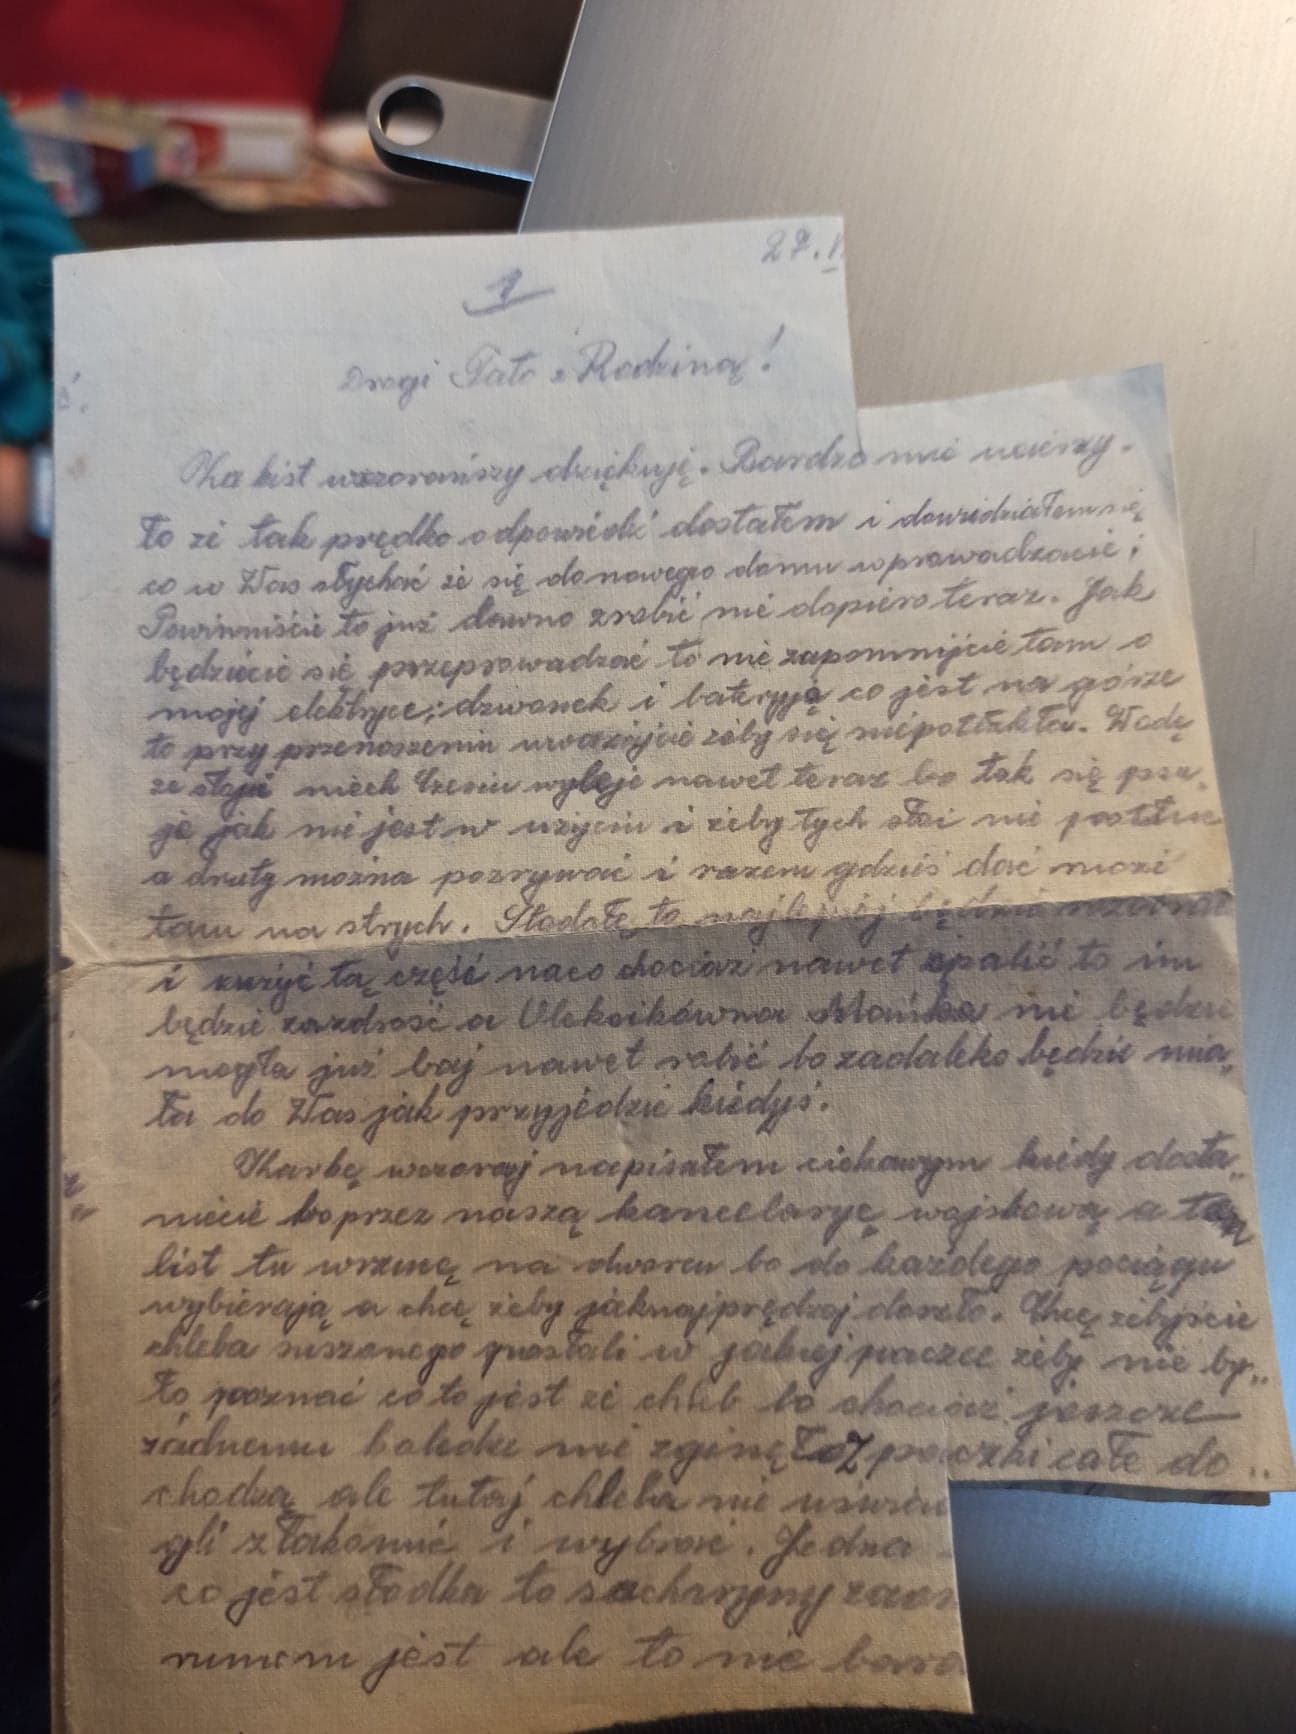 27.
1
Drogi Tato z Rodziną!
Za list wczorajszy dziękuję. Bardzo mie ucieszy.
ło ze tak prędko odpowiedź dostałem i dowiedziałem się
co w Was słychać że się do nowego domu wprowadzacie;
Powinniście to już dawno zrobić nie dopiero teraz. Jak
będziecie się przeprowadzać to nie zapomnijcie tam o
mojej elektryce; dzwonek i bateryją co jest na górze
to przy przenoszeniu uważajcie żeby się niepotłukła. Wodę
ze słoji niech Czesiu wyleje nawet teraz bo tak się psu„
je jak nie jest w użyciu i żeby tych słoi nie postłuc
a druty można pozrywać i razem gdzieś dać może
tam na strych. Stodołę to najlepiej będzie rozebrać
i zużyć tą część naco chociaż nawet spalić to im
będzie zazdrość a Mańka nie będzie
mogła już baj nawet robić bo zadaleko będzie mia„
ła do Was jak przyjedzie kiedyś.
Kartkę wczoraj napisałem ciekawym kiedy dosta„
niecie bo przez naszą kancelaryę wojskową a ten
list tu wrzucę na dworcu bo do każdego pociągu
wybierają a chcę żeby jaknajprędzej doszło. Chcę żebyście
chleba suszonego posłali w jakiej paczce żeby nie by„
ło poznać co to jest że chleb bo chociaż jeszcze
żadnemu koledze nie zginęło z paczki całe do„
chodzą ale tutaj chleba nie
gli złakomić i wybrać. Jedna
co jest słodka to sacharyny
rumem jest ale to nie